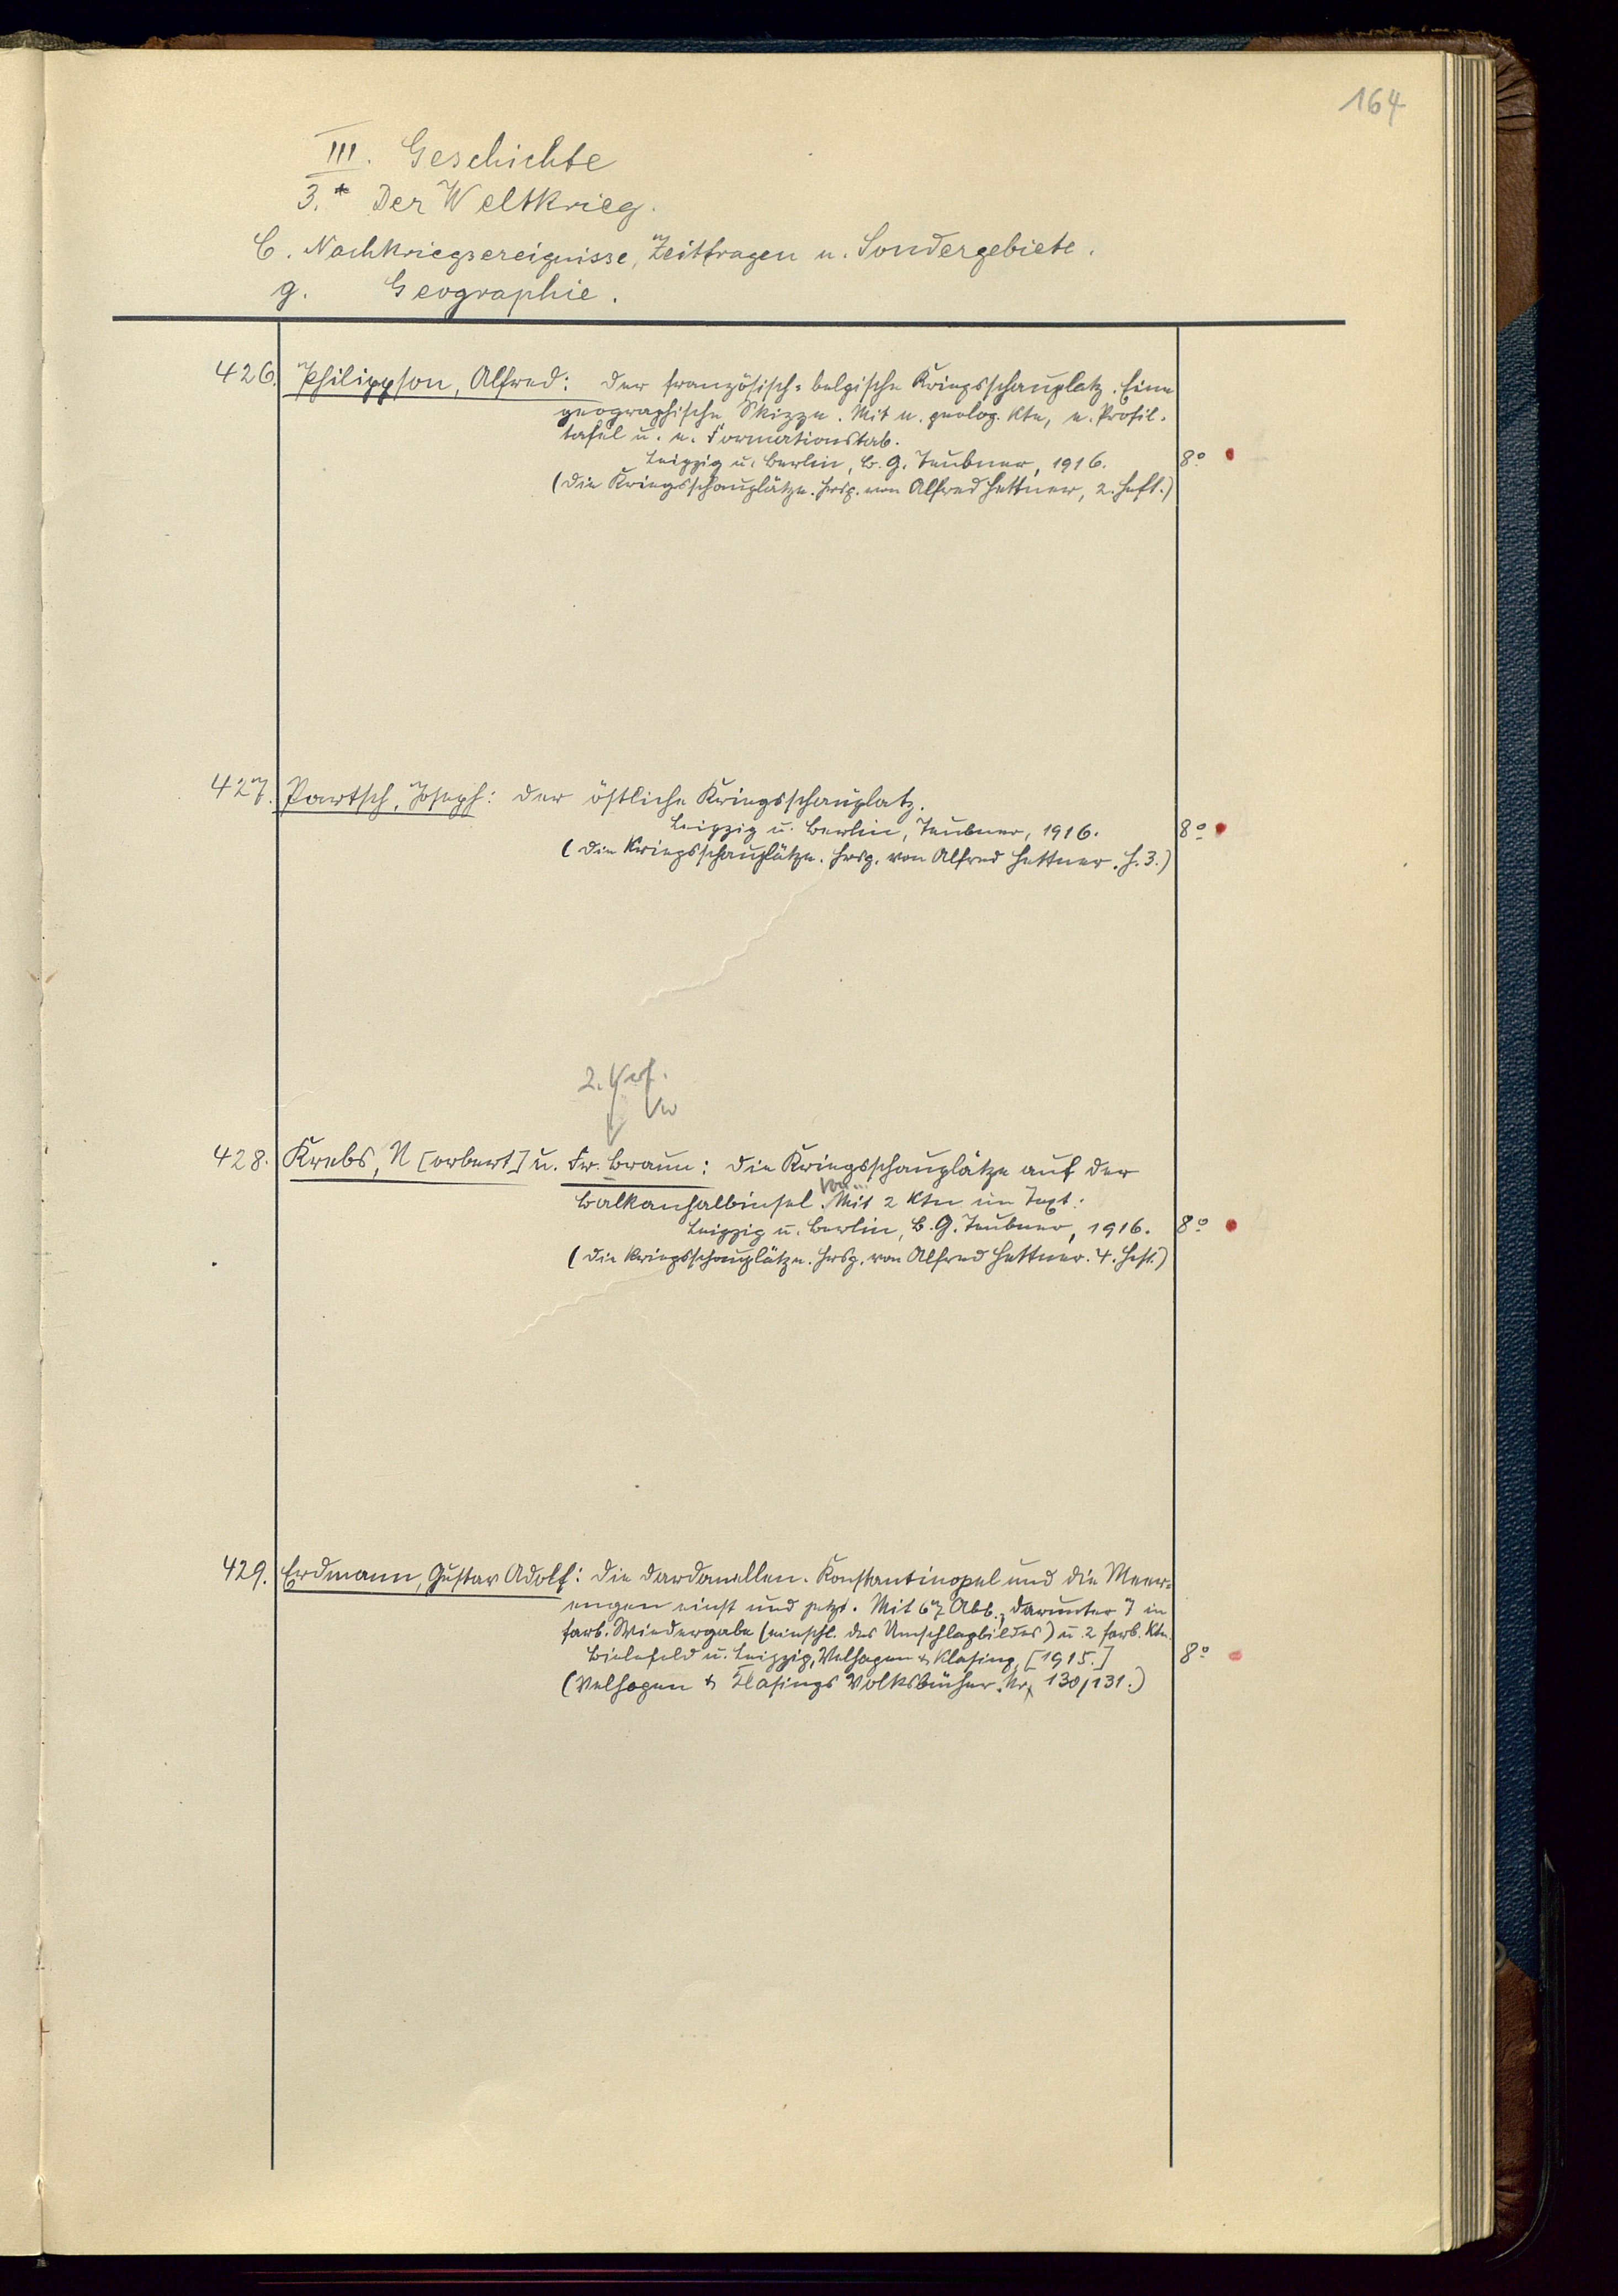 164
III. Geschichte
3.* Der Weltkrieg.
C. Nachkriegsereignisse, Zeitfragen u. Sondergebiete.
g. Geographie.
426. Philippson, Alfred: Der französisch-belgische Kriegsschauplatz. Eine
geographische Skizze. Mit e. geolog. Kte, e. Profil-
tafel u. e. Formationstab.
Leipzig u. Berlin, B. G. Teubner, 1916. 8°
(Die Kriegsschauplätze. Hrsg. von Alfred Hettner, 2. Heft.)
427. Partsch, Joseph: Der östliche Kriegsschauplatz.
Leipzig u. Berlin, Teubner, 1916. 8°
(Die Kriegsschauplätze. Hrsg. von Alfred Hettner. H. 3.)
2. Verf.
Vw
428. Krebs, N[orbert] u. Fr. Braun: Die Kriegsschauplätze auf der
Von...
Balkanhalbinsel. Mit 2 Ktn im Text.
Leipzig u. Berlin, B. G. Teubner, 1916. 8°
(Die Kriegsschauplätze. Hrsg. von Alfred Hettner. 4. Heft.)
429. Erdmann, Gustav Adolf: Die Dardanellen. Konstantinopel und die Meer-
engen einst und jetzt. Mit 67 Abb., darunter 7 in
farb. Wiedergabe (einschl. des Umschlagbildes) u. 2 farb. Ktn.
Bielefeld u. Leipzig, Velhagen & Klasing, [1915.] 8°
(Velhagen & Klasings Volksbücher. Nr. 130/131.)